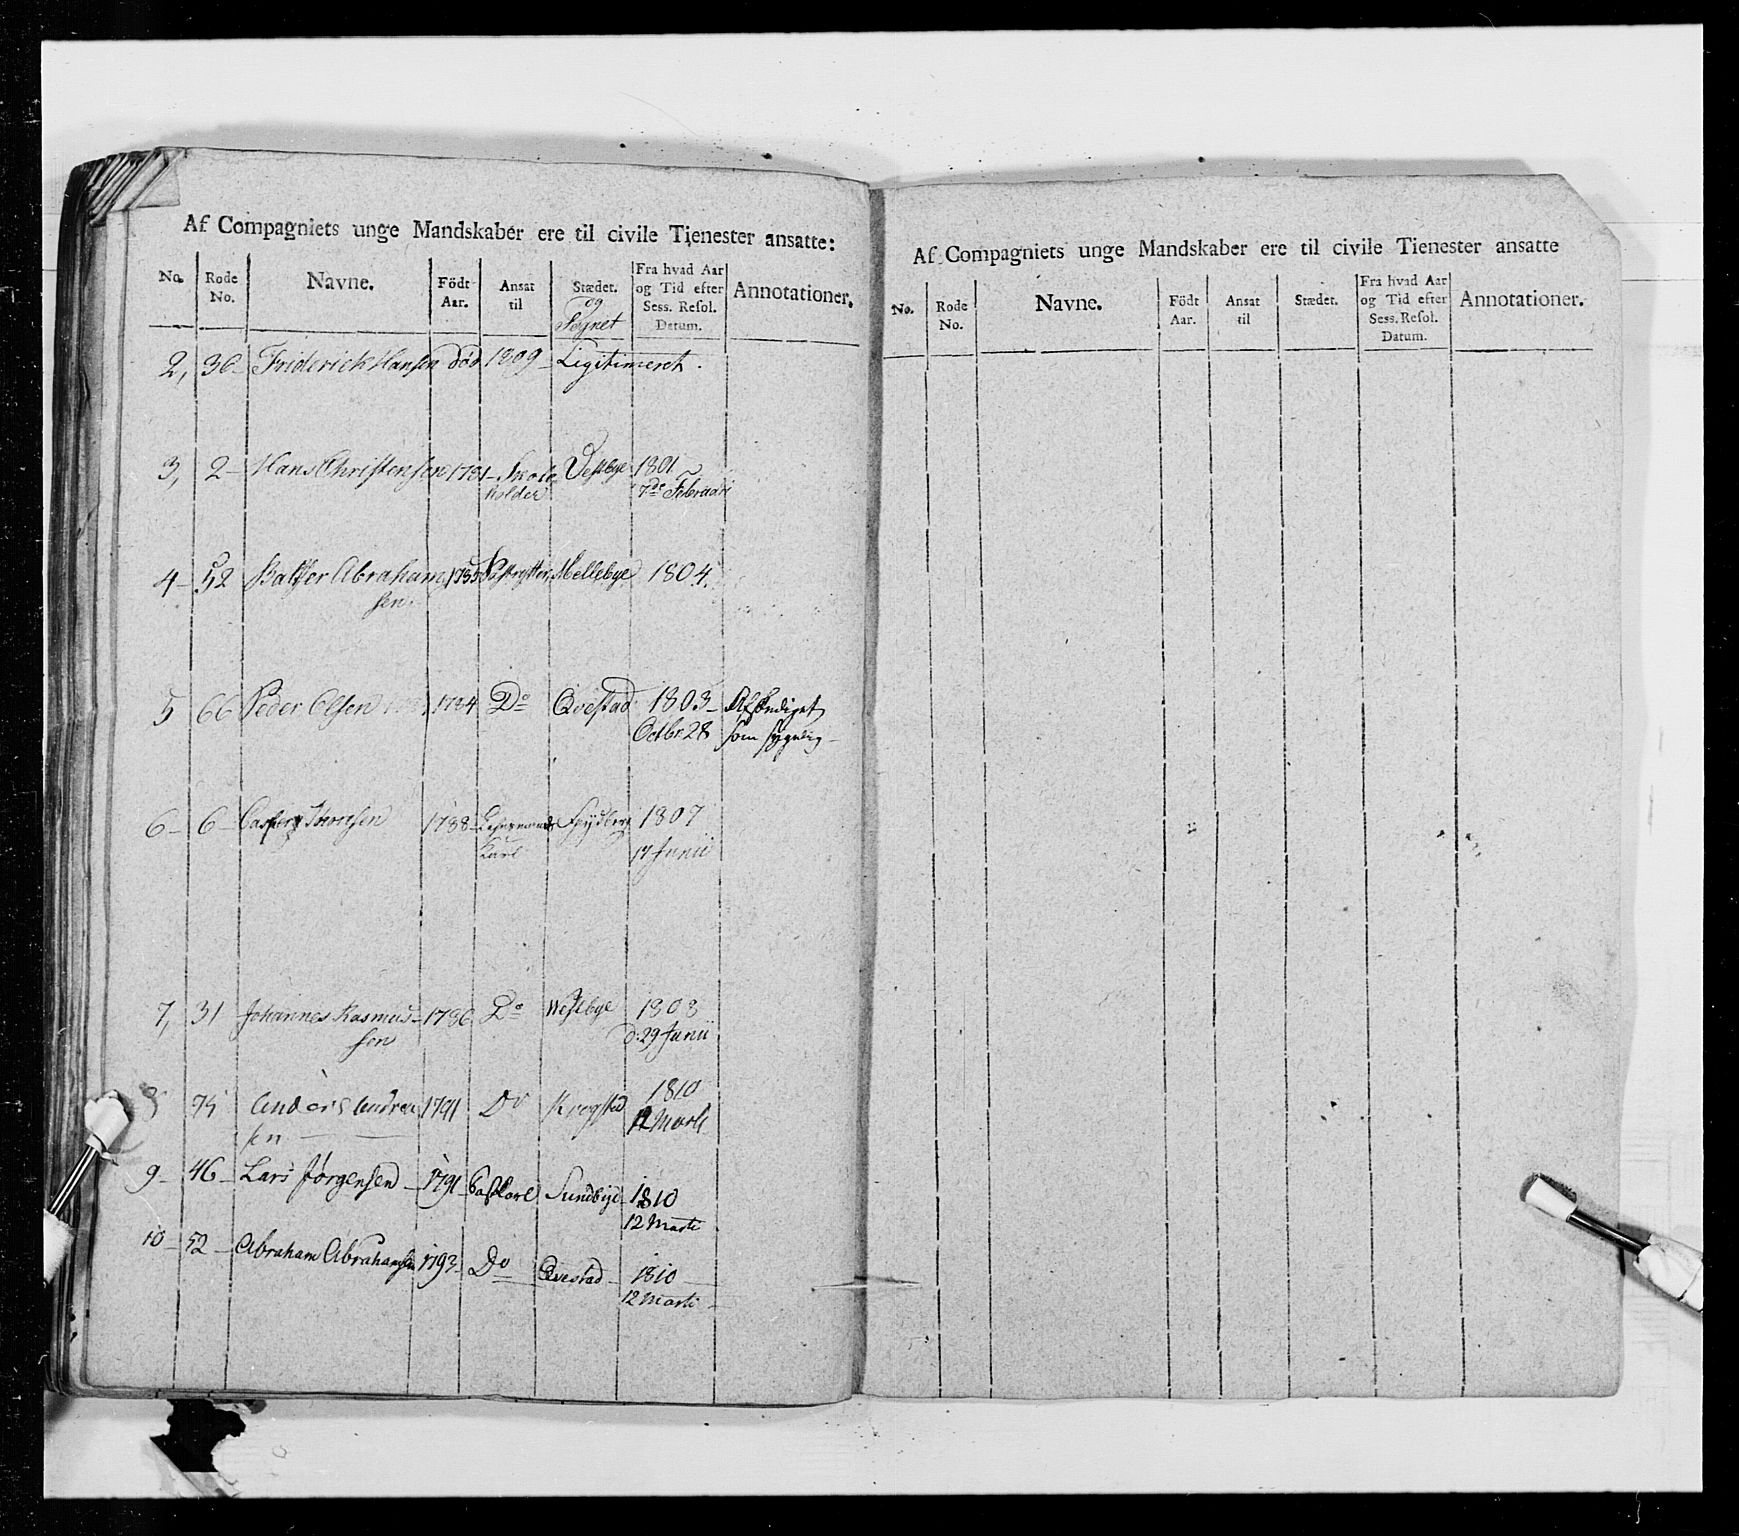 Af Compagniets unge Mandskaber ere til civile Tienester ansatte:
No. Rode No. Navne. Födt Aar. Ansat til Stædet. og Fra hvad Aar og Tid efter Sess. Resol. Datum. Annotationer.
2, 36 Friderick Hansen død 1809 - Legitimeret.
3, 2 - Hans Christensen 1781 - Skole Vestbye 1801
holder 7de Februari
4 - 52 Balzer Abraham 1785 Postrytter Mellebye 1804.
sen.
5 66 Peder Olsen 1784 Do Qvestad 1803 - Afskediget
Octbr 28 som sygelig -
6 - 6 - Casper 1788 - Spydberg 1807
Karl 17 Junii
7, 31 Johannes Rasmus - 1786 Do Westbye 1808
sen d: 29 Junii
8 75 Anders Andrea 1791 Do Krogstad 1810
sen 12 Marti
9 - 46 - Lars Jørgensen - 1791 - Sundbye - 1810
12 Marti
10 - 52 - Abraham Abrahamsen 1793 - Do Qvestad - 1810
12 Marti -
Af Compagniets unge Mandskaber ere til civile Tienester ansatte
No. Rode No. Navne. Födt Aar. Ansat til Stædet. Fra hvad Aar og Tid efter Sess. Resol. Datum. Annotationer.